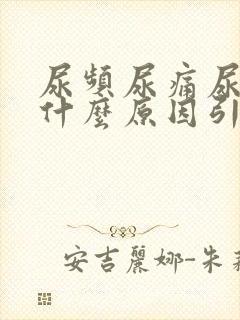 尿頻尿痛尿
什麼原因引
安吉麗娜-朱